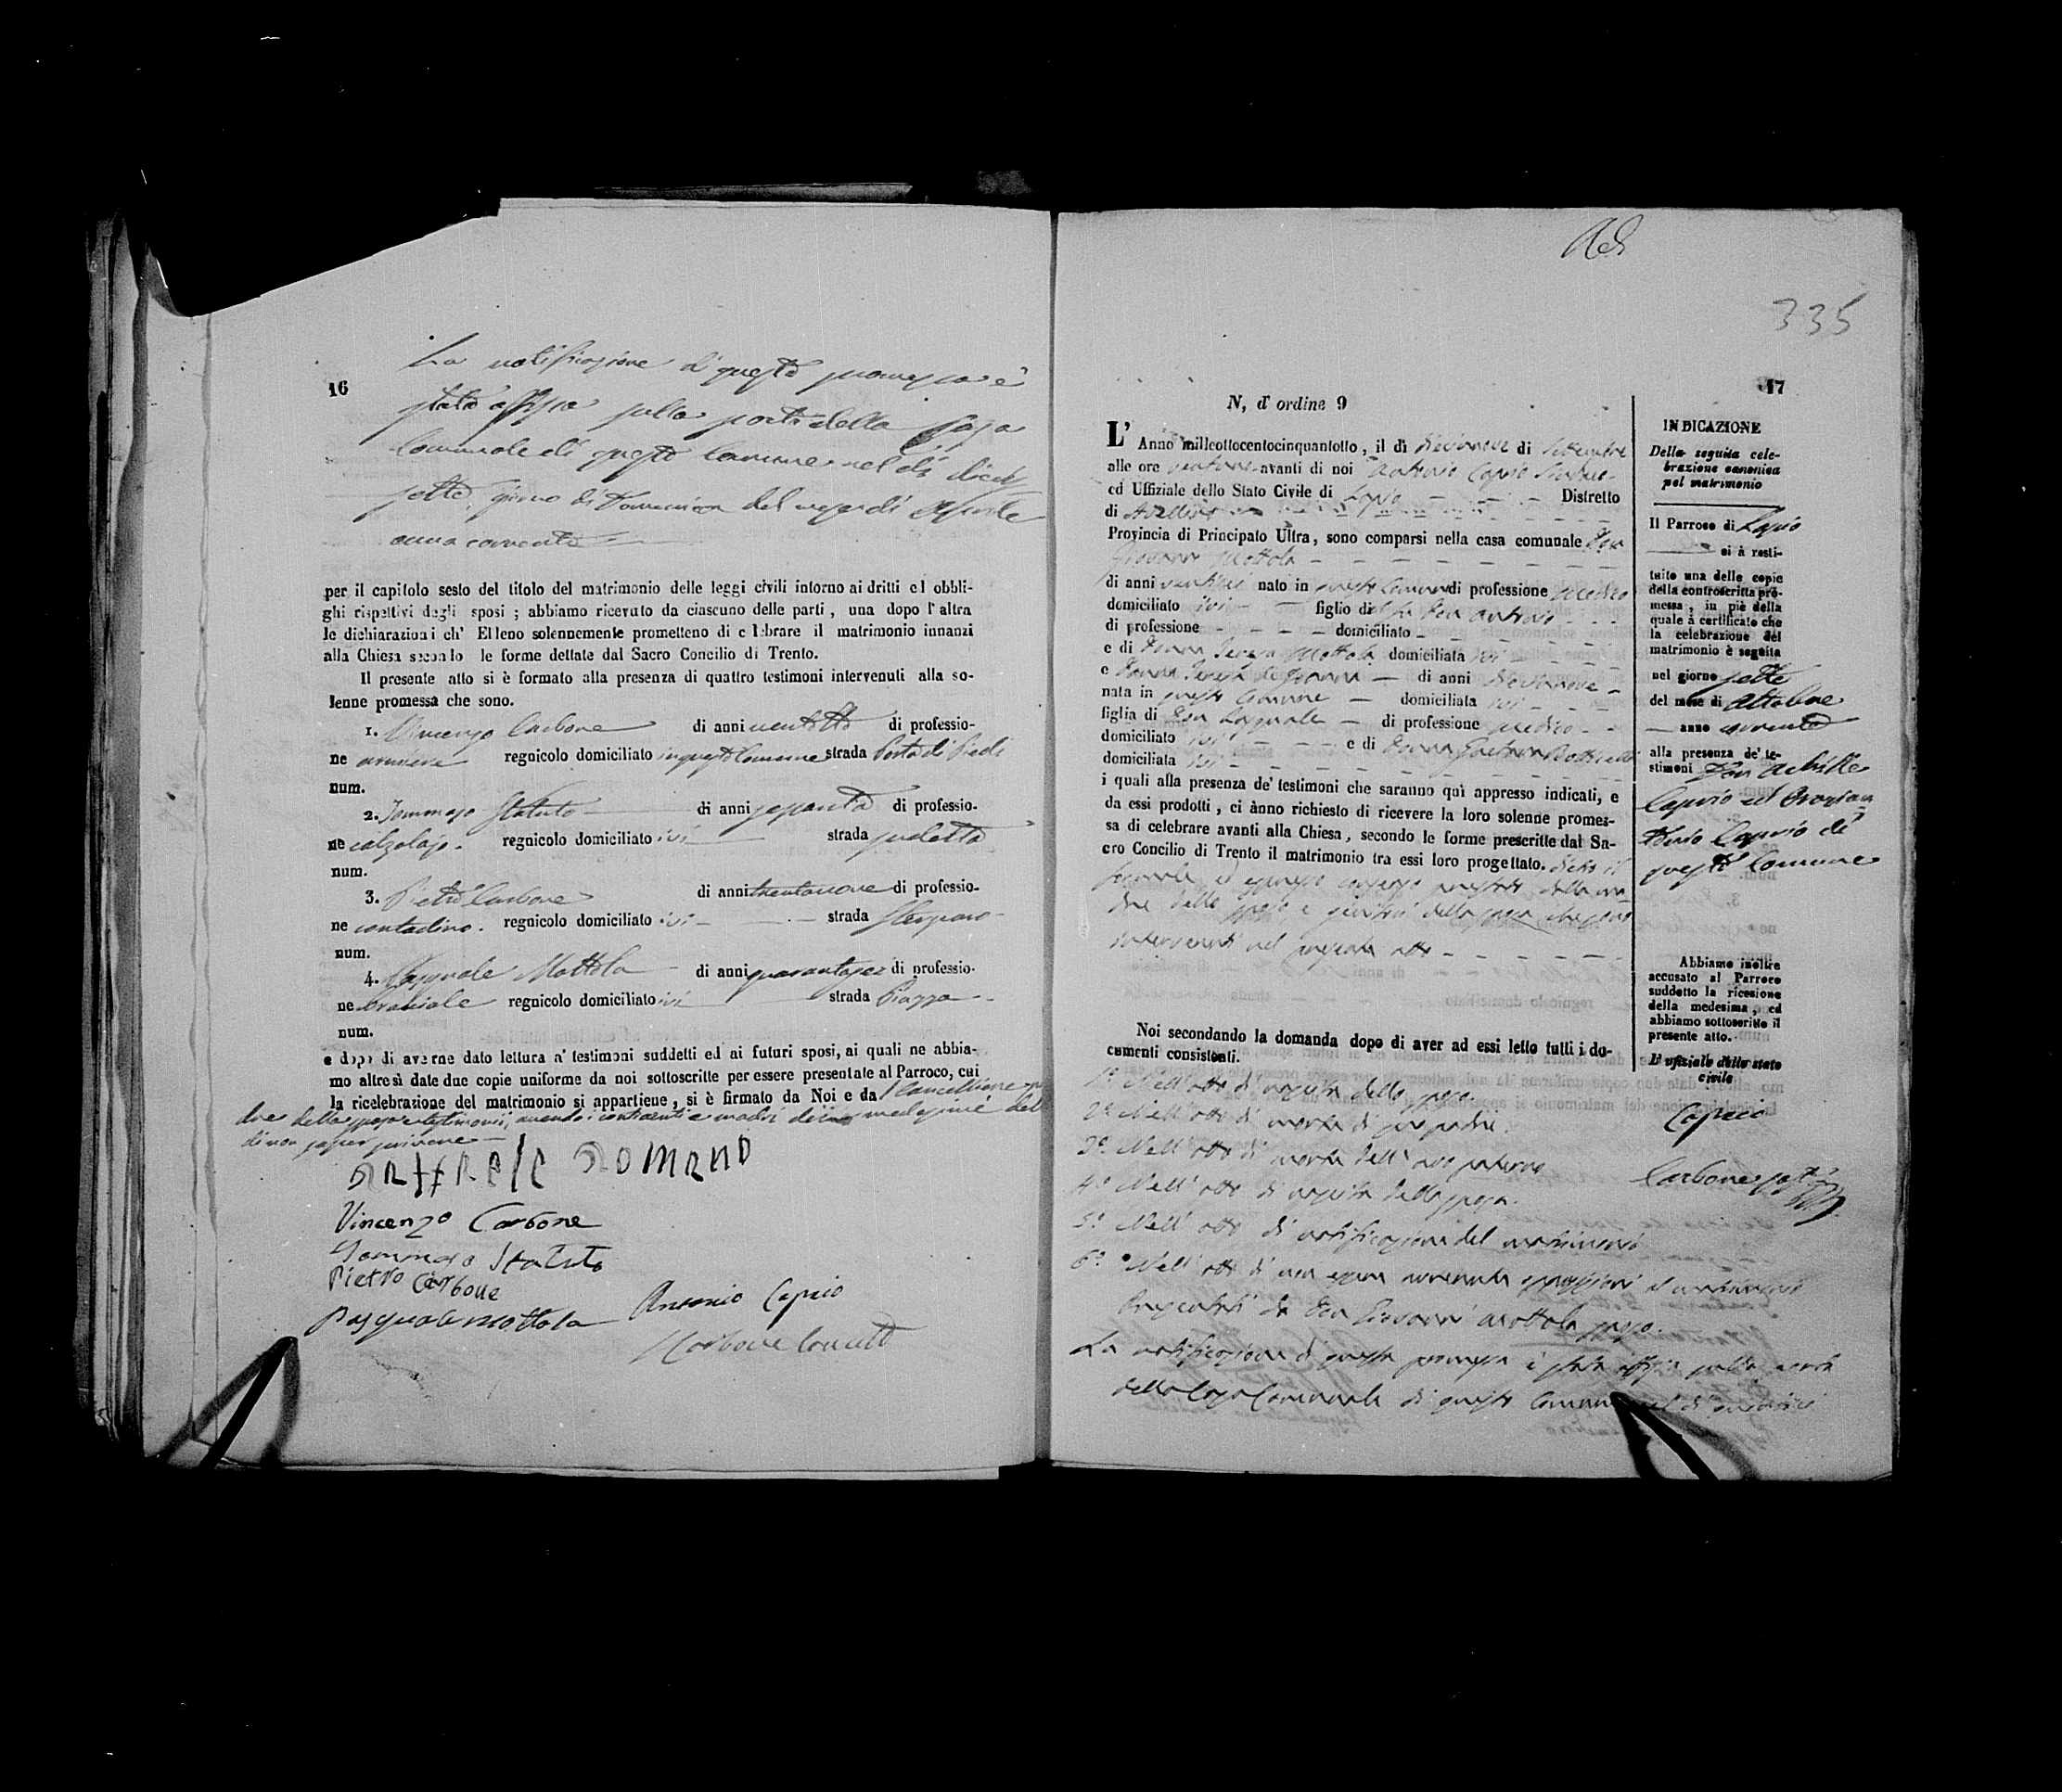 16
La notificazione di questa promessa è
stata affissa sulla porta della Casa
Comunale di questo Comune nel dì dieci
sette, giorno di Domenica del mese di
anno corrente
per il capitolo sesto del titolo del matrimonio delle leggi civili intorno ai dritti el obbli-
ghi rispettivi degli sposi ; abbiamo ricevuto da ciascuno delle parti , una dopo l' altra
le dichiarazioni ch' Elleno solennemente promettono di celebrare il matrimonio innanzi
alla Chiesa secondo le forme dettate dal Sacro Concilio di Trento.
Il presente atto si è formato alla presenza di quattro testimoni intervenuti alla so-
lenne promessa che sono.
1. Vincenzo Carbone di anni ventotto di professio-
ne regnicolo domiciliato in questo Comune strada Porta di Piedi
num.
2. Tommaso Statuto di anni sessanta di professio-
ne calzolajo. regnicolo domiciliato ivi strada
num.
3. Pietro Carbone di anni trentanove di professio-
ne contadino. regnicolo domiciliato ivi strada
num.
4. Pasquale Mottola di anni quarantasei di professio-
ne bracciale regnicolo domiciliato ivi strada Piazza
num.
e dopo di averne dato lettura a' testimoni suddetti ed ai futuri sposi, ai quali ne abbia-
mo altresì date due copie uniforme da noi sottoscritte per essere presentate al Parroco, cui
la ricelebrazione del matrimonio si appartiene , si è firmato da Noi e da l Cancelliere
dre della sposa e testimonii, avendo i contraenti e madri
di non saper scrivere
Raffaele Romano
Vincenzo Carbone
Tommaso Statuto
Pietro Carbone
Pasquale Mottola Antonio Caprio
Carbone
335
17
N, d' ordine 9
L' Anno milleottocentocinquantotto , il dì diciannove di Settembre
alle ore avanti di noi Antonio Caprio Sindaco
ed Uffiziale dello Stato Civile di Lapio Distretto
di Avellino
Provincia di Principato Ultra , sono comparsi nella casa comunale Don
Giovanni Mottola
di anni ventisei nato in questo Comune di professione Medico
domiciliato ivi figlio del fu Don Antonio
di professione domiciliato
e di Donna Teresa Mottola domiciliata ivi
e Donna Teresa di anni diciannove
nata in questo Comune domiciliata ivi
figlia di Don Pasquale di professione Medico
domiciliato ivi e di Donna Gaetana
domiciliata ivi
i quali alla presenza de' testimoni che saranno quì appresso indicati, e
da essi prodotti , ci ànno richiesto di ricevere la loro solenne promes-
sa di celebrare avanti alla Chiesa , secondo le forme prescritte dal Sa-
cro Concilio di Trento il matrimonio tra essi loro progettato. dietro il
formale ed espresso consenso prestato dalla ma-
dre dello sposo e genitori della sposa che sono
intervenuti nel presente atto
Noi secondando la domanda dopo di aver ad essi letto tutti i do-
cumenti consistenti.
1º Nell' atto di nascita dello sposo.
2º Nell' atto di morte di suo padre.
3º Nell' atto di morte dell' avo paterno
4º Nell' atto di nascita della sposa.
5º Nell' atto di notificazione del matrimonio
6º Nell' atto di non essere avvenuta opposizioni al matrimonio
presentati da Don Giovanni Mottola sposo.
La notificazione di questa promessa è stata affissa sulla porta
della Casa Comunale di questo Comune nel dì
INDICAZIONE
Della seguita cele-
brazione canonica
pel matrimonio
Il Parroco di Lapio
ci à resti-
tuito una delle copie
della controscritta pro-
messa , in piè della
quale à certificato che
la celebrazione del
matrimonio è seguita
nel giorno sette
del mese di Ottobre
anno corrente
alla presenza de' te-
stimoni Don Achille
Caprio ed
Caprio di
questo Comune
Abbiamo inoltre
accusato al Parroco
suddetto la ricezione
della medesima , ed
abbiamo sottoscritto il
presente atto.
L' ufiziale dello stato
civile
Caprio
Carbone